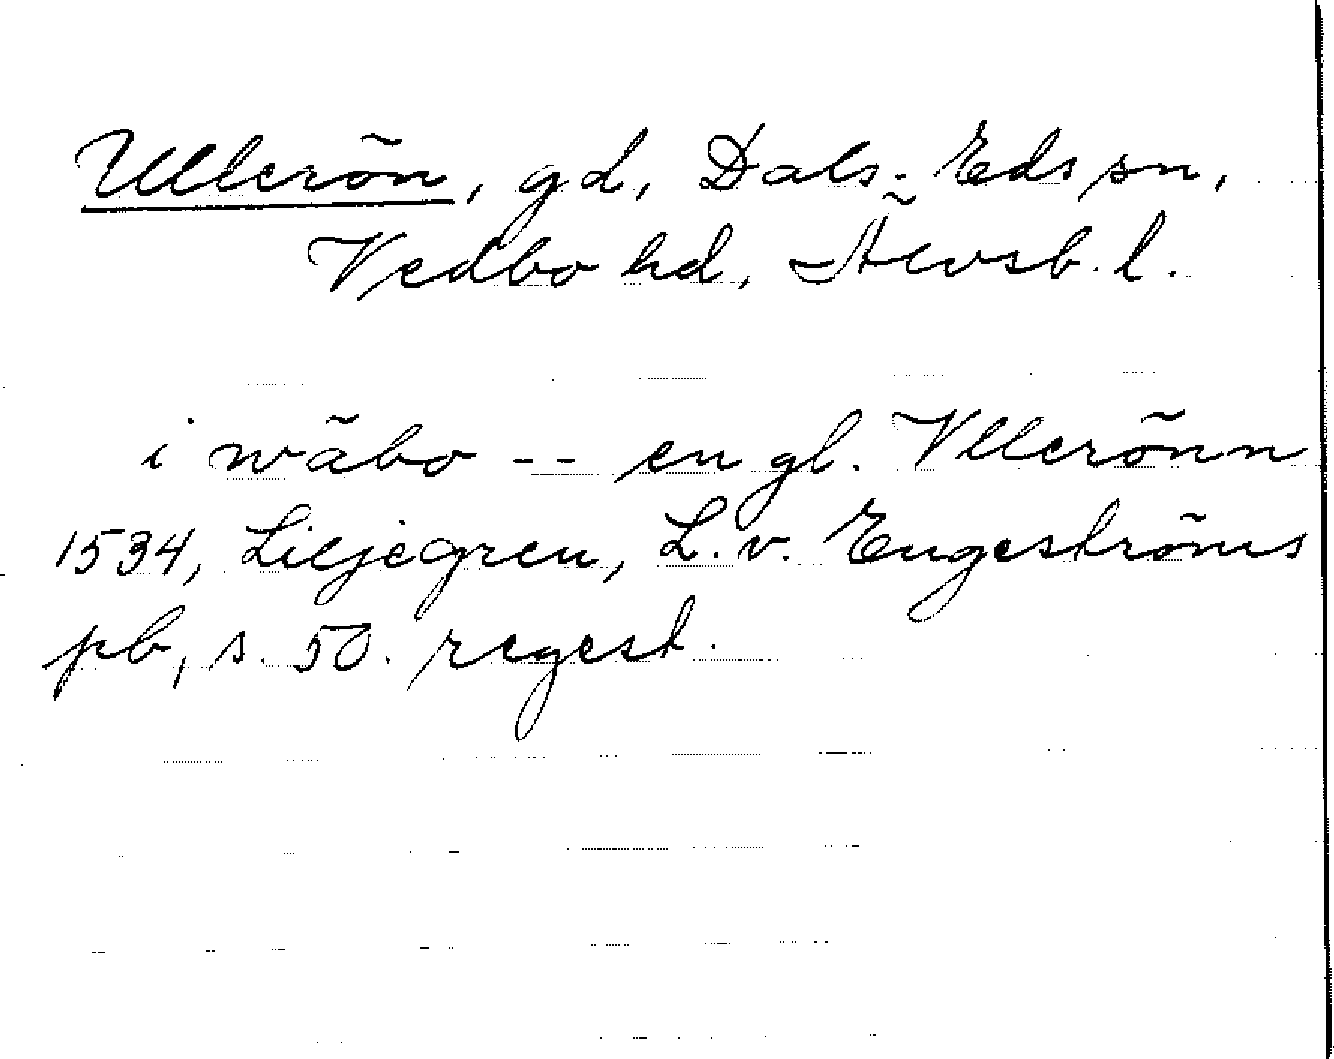 Ullerön, gd, Dals-Eds sn,
Vedbo hd, Älvsb. l.
i wäbo -- en gl. Vllerönn
1534, Liljegren, L. v. Engeströms
pb, s. 50. regest.